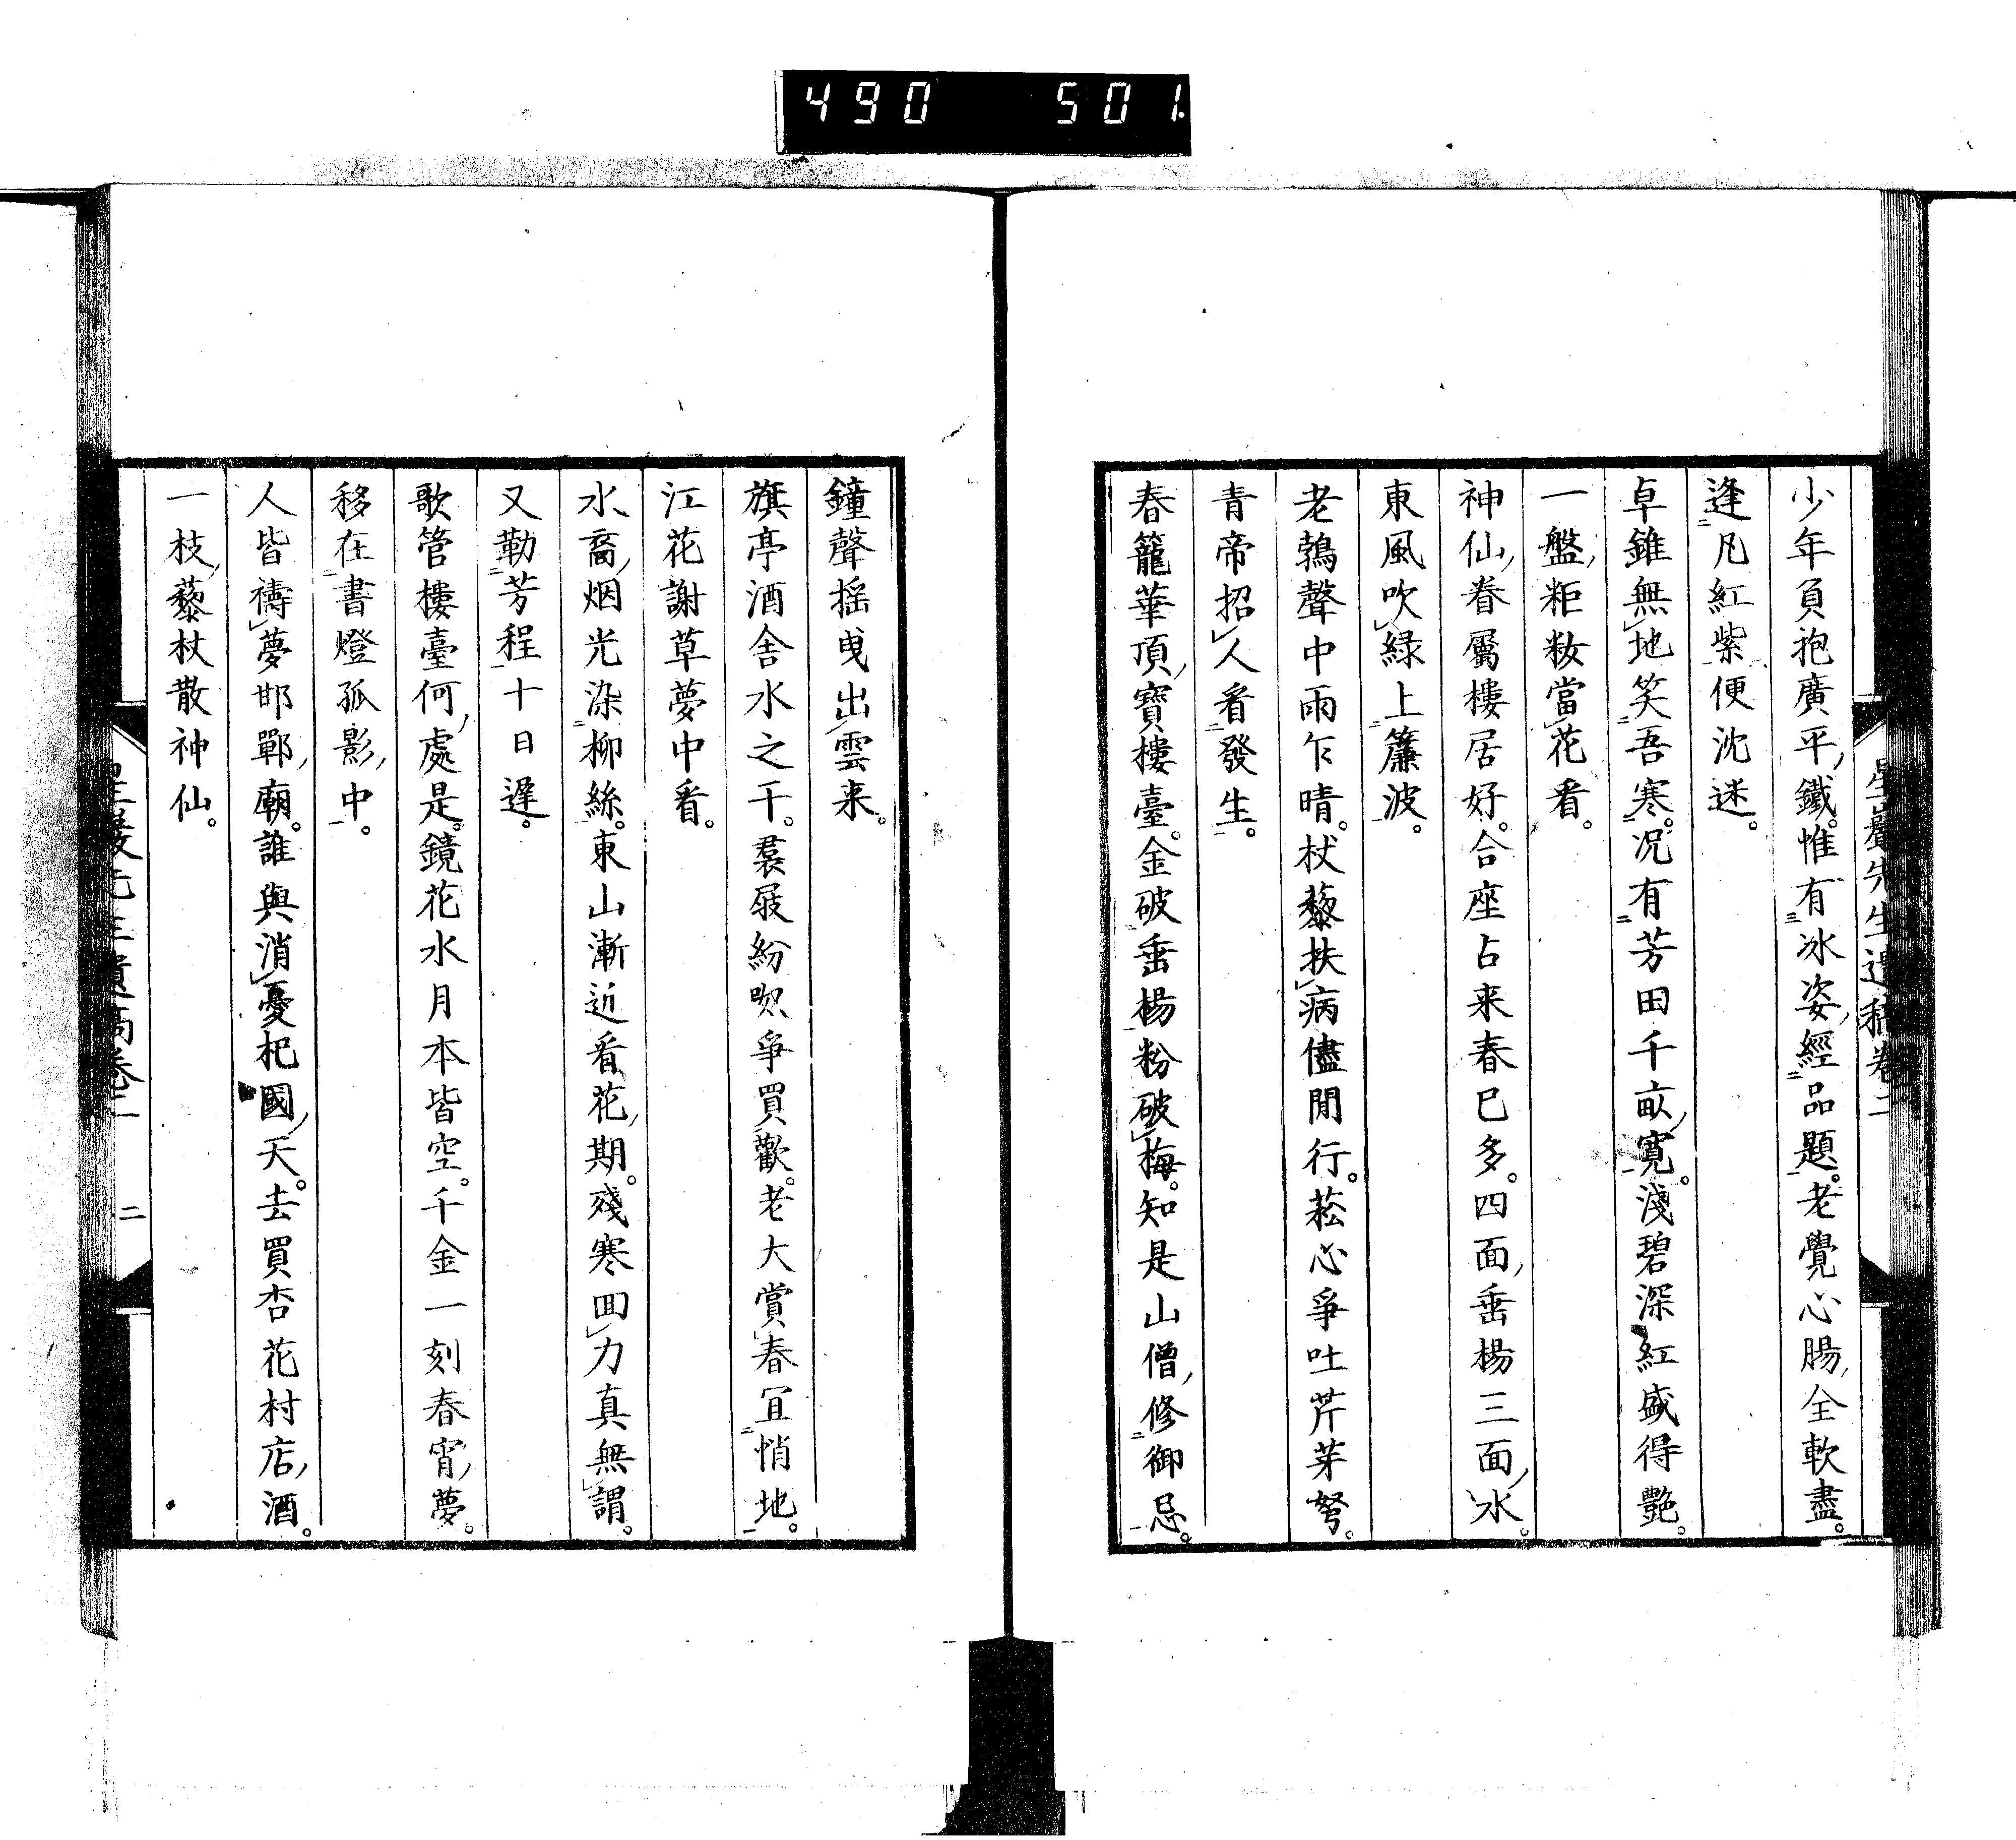 490 501
星巖先生遺稿卷二
少年負抱廣平鐵。惟有冰姿經品題。老覺心腸全軟盡。
逢凡紅紫便沈迷。
卓錐無地笑吾寒。况有芳田千畝寬。淺碧深紅盛得艷。
一盤粔籹當花看。
神仙眷屬樓居好。合座占来春已多。四面垂楊三面水。
東風吹綠上簾波。
老鶉聲中雨乍晴。杖藜扶病儘閒行。菘心爭吐芹芽努。
青帝招人看發生。
春籠華頂寶樓臺。金破垂楊粉破梅。知是山僧修御忌。
鐘聲搖曳出雲来。
旗亭酒舍水之干。裠屐紛吹爭買歡。老大賞春宜悄地。
江花謝草夢中看。
水裔烟光染柳絲。東山漸近看花期。殘寒囬力真無謂。
又勒芳程十日遲。
歌管樓臺何處是。鏡花水月本皆空。千金一刻春宵夢。
移在書燈孤影中。
人皆禱夢邯鄲廟。誰與消憂杞國天。去買杏花村店酒。
一枝藜杖散神仙。
星巖先生遺稿卷二 二